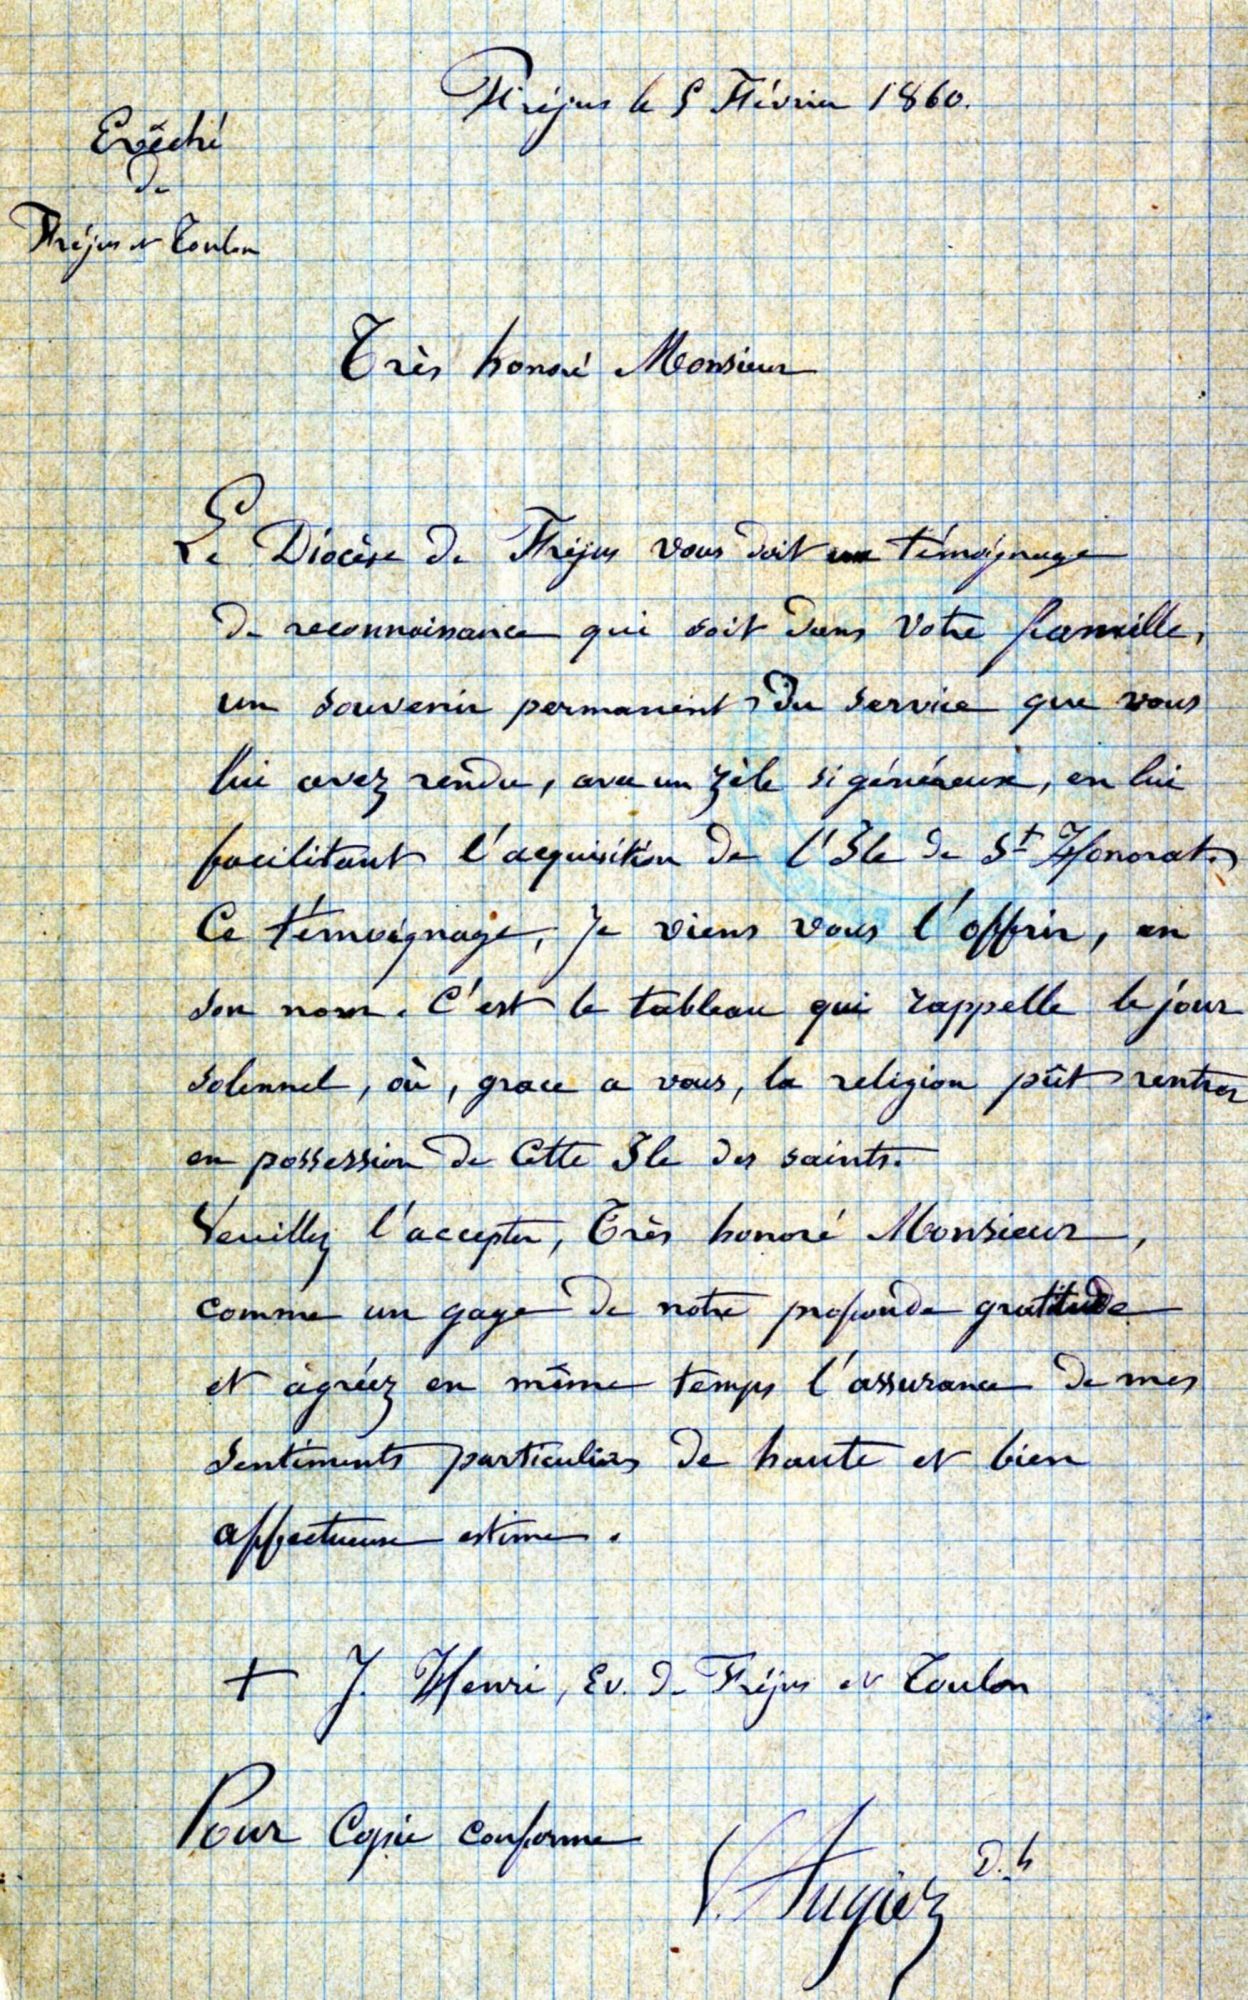 Fréjus le 5 Février 1860.
Evêché
de
Fréjus et Toulon
Très honoré Monsieur
Le Diocèse de Fréjus vous doit un témoignage
de reconnaissance qui soit dans votre famille,
un souvenir permanent du service que vous
lui avez rendu, avec un zèle si généreux, en lui
facilitant l'acquisition de l'Ile de St Honorat.
Ce témoignage, je viens vous l'offrir, en
son nom. C'est le tableau qui rappelle le jour
solennel, où, grace a vous, la religion pût rentrer
en possession de cette Ile des saints.
Veuillez l'accepter, Très honoré Monsieur,
comme un gage de notre profonde gratitude
et agréez en même temps l'assurance de mes
sentiments particuliers de haute et bien
affectueuse estime.
+ J. Henri, Ev. de Fréjus et Toulon
Pour Copie conforme
V. Augier D. h